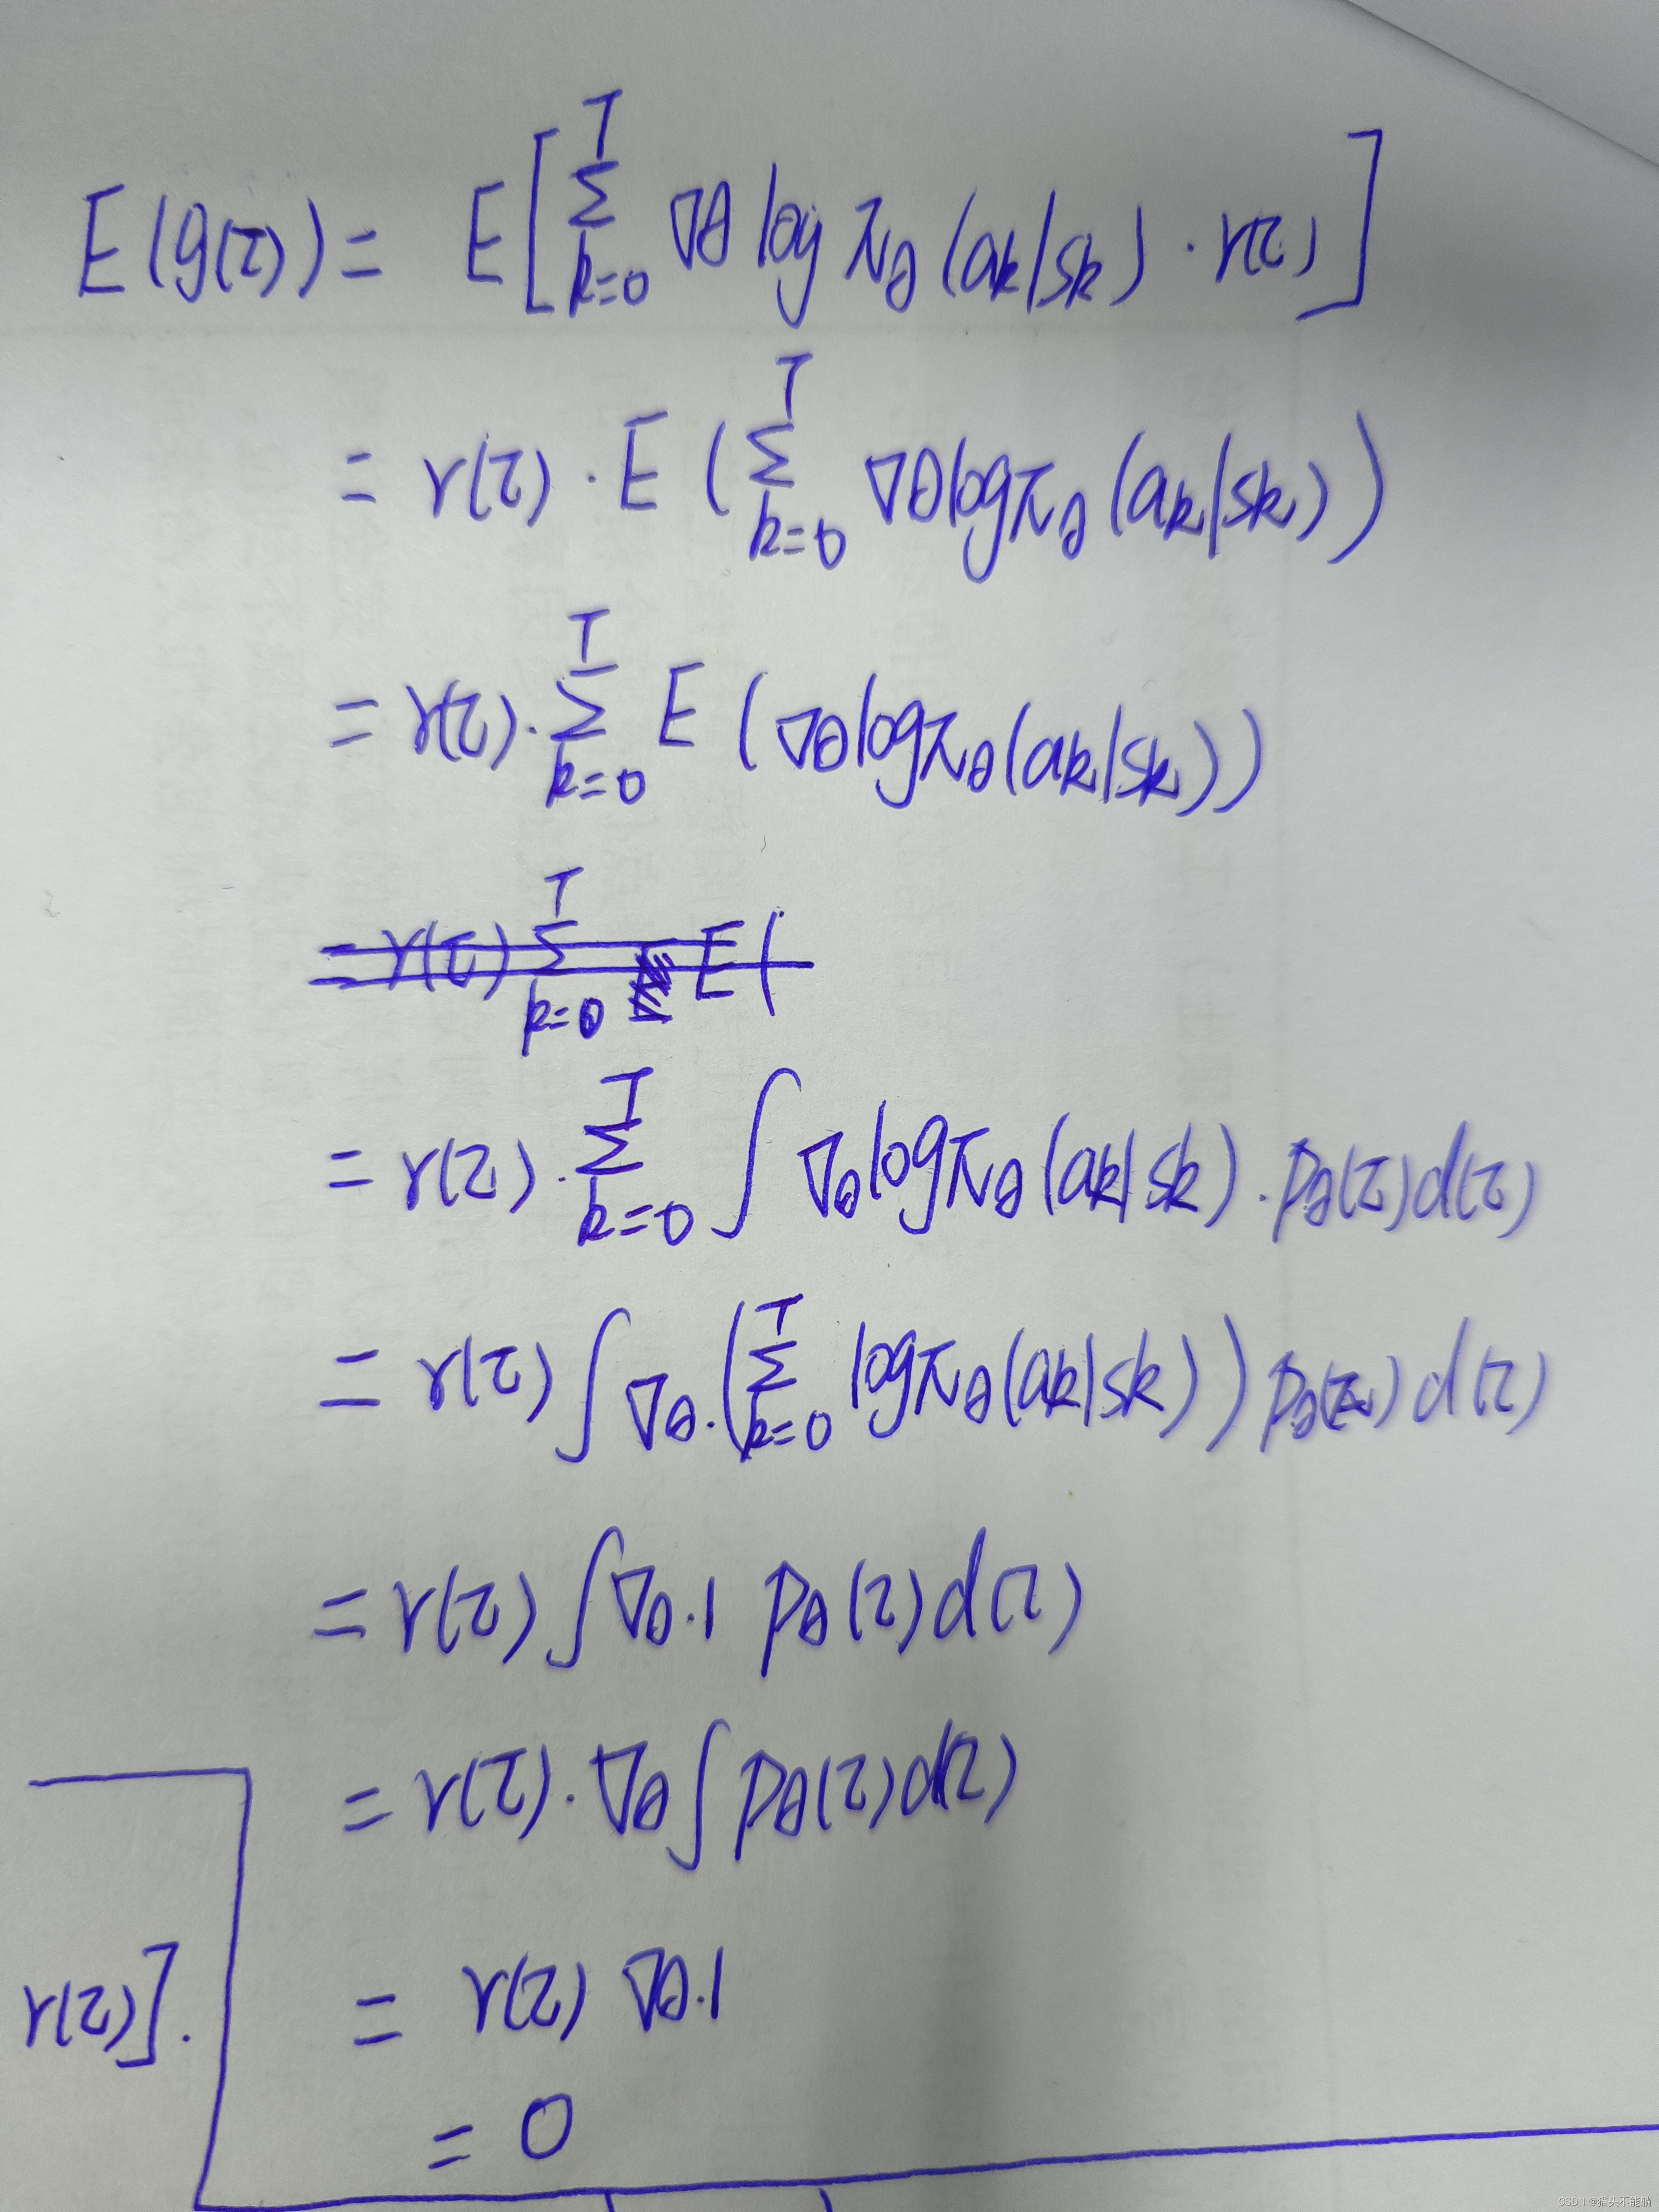 E(g(τ)) = E[∑_{k=0}^{T} ∇θ log πθ(ak|sk) · r(τ)]
= r(τ) · E(∑_{k=0}^{T} ∇θ log πθ(ak|sk))
= r(τ) · ∑_{k=0}^{T} E(∇θ log πθ(ak|sk))
= r(τ) ∑_{k=0}^{T} E(
= r(τ) · ∑_{k=0}^{T} ∫ ∇θ log πθ(ak|sk) · pθ(τ) d(τ)
= r(τ) ∫ ∇θ · (∑_{k=0}^{T} log πθ(ak|sk)) pθ(τ) d(τ)
= r(τ) ∫ ∇θ · 1 pθ(τ) d(τ)
= r(τ) · ∇θ ∫ pθ(τ) d(τ)
r(τ)].
= r(τ) ∇θ · 1
= 0
CSDN @猫头不能躺